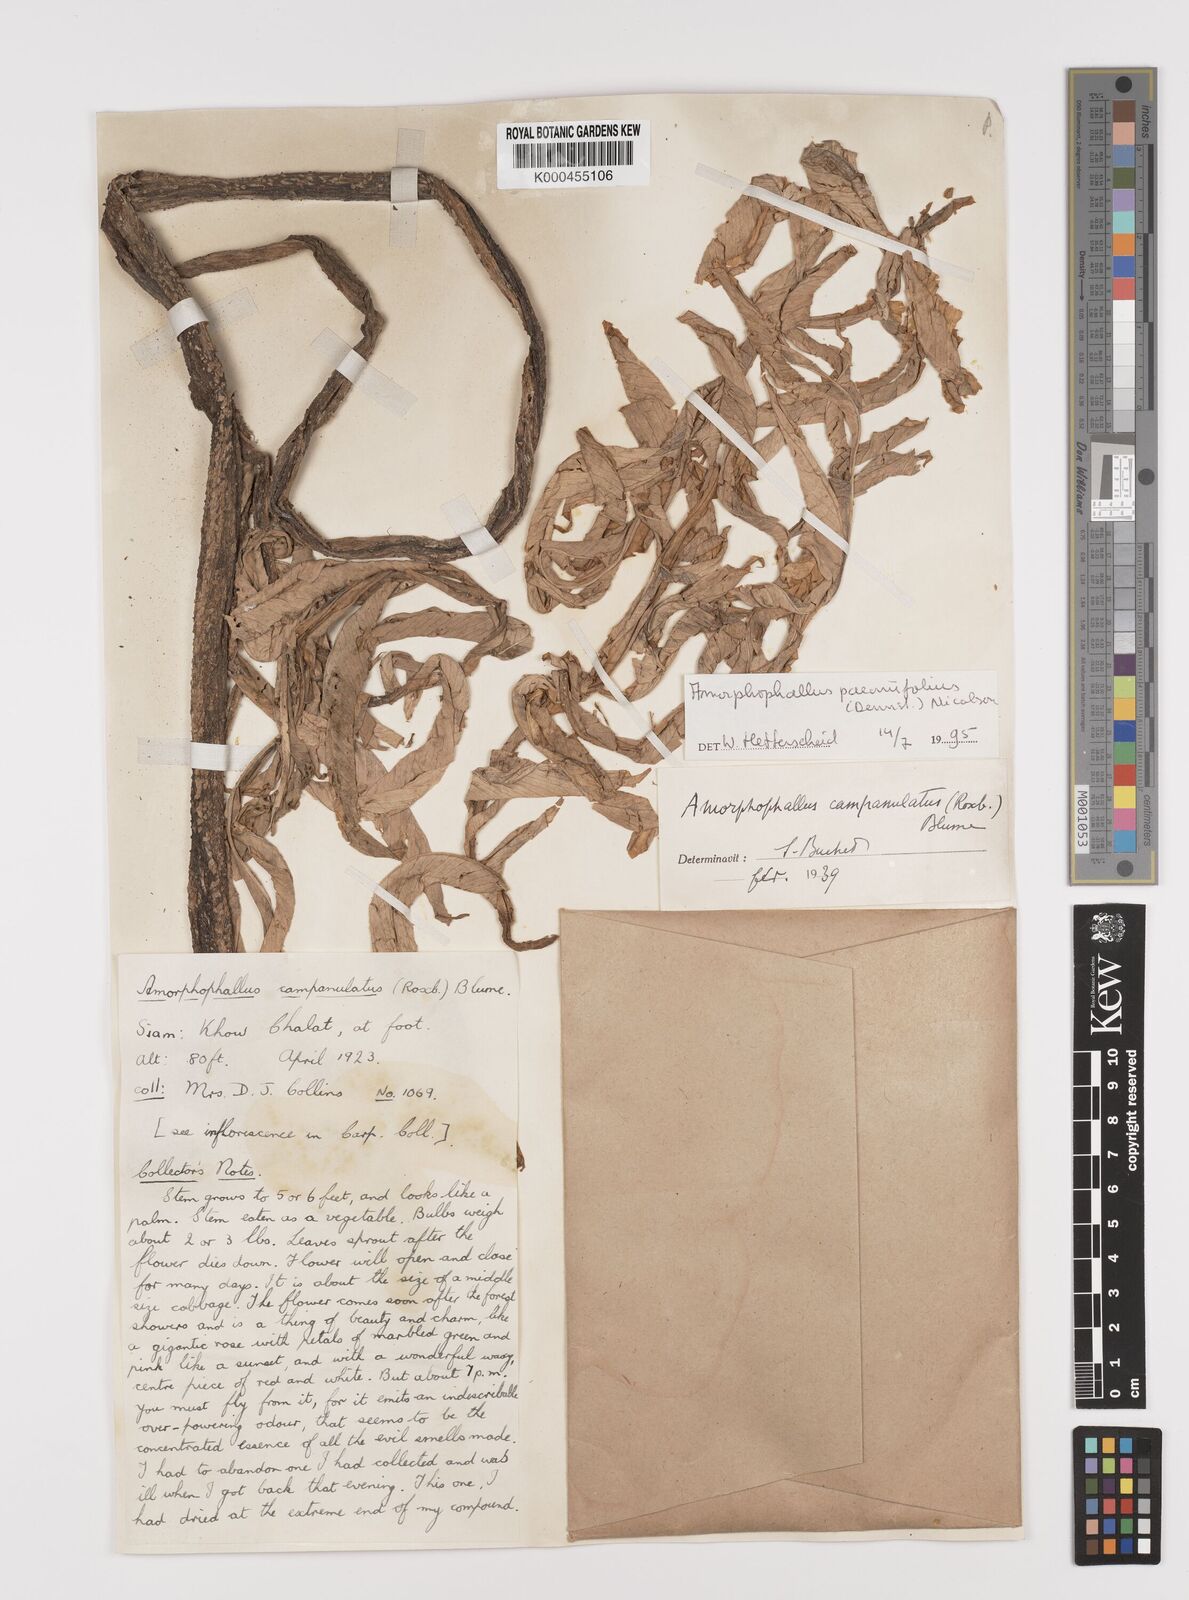 ROYAL BOTANIC GARDENS KEW
K000455106
Amorphophallus paeoniifolius
(Dennst.) Nicolson
DET W. Hetterscheid 14/7 1995
Amorphophallus campanulatus (Roxb.)
Blume
Determinavit: S. Buchet
febr. 1939
Amorphophallus campanulatus (Roxb.) Blume.
Siam: Khow Chalat, at foot.
Alt: 80ft. April 1923.
Coll: Mrs. D. J. Collins No. 1069.
[see infloriscence in Carp. Coll.]
Collector's Notes.
Stem grows to 5 or 6 feet, and looks like a
palm. Stem eaten as a vegetable. Bulbs weigh
about 2 or 3 lbs. Leaves sprout after the
flower dies down. Flower will open and close
for many days. It is about the size of a middle
size cabbage. The flower comes soon after the forest
showers and is a thing of beauty and charm, like
a gigantic rose with petals of marbled green and
pink like a sunset, and with a wonderful waxy,
centre piece of red and white. But about 7 p.m.
you must fly from it, for it emits an indescribable
over-powering odour, that seems to be the
concentrated essence of all the evil smells made.
I had to abandon one I had collected and was
ill when I got back that evening. This one, I
had dried at the extreme end of my compound.
inches
centimetres
Density
Don Williams
M001053
Kew
Royal Botanic Gardens
copyright reserved
0 1 2 3 4 5 6 7 8 9 10
cm